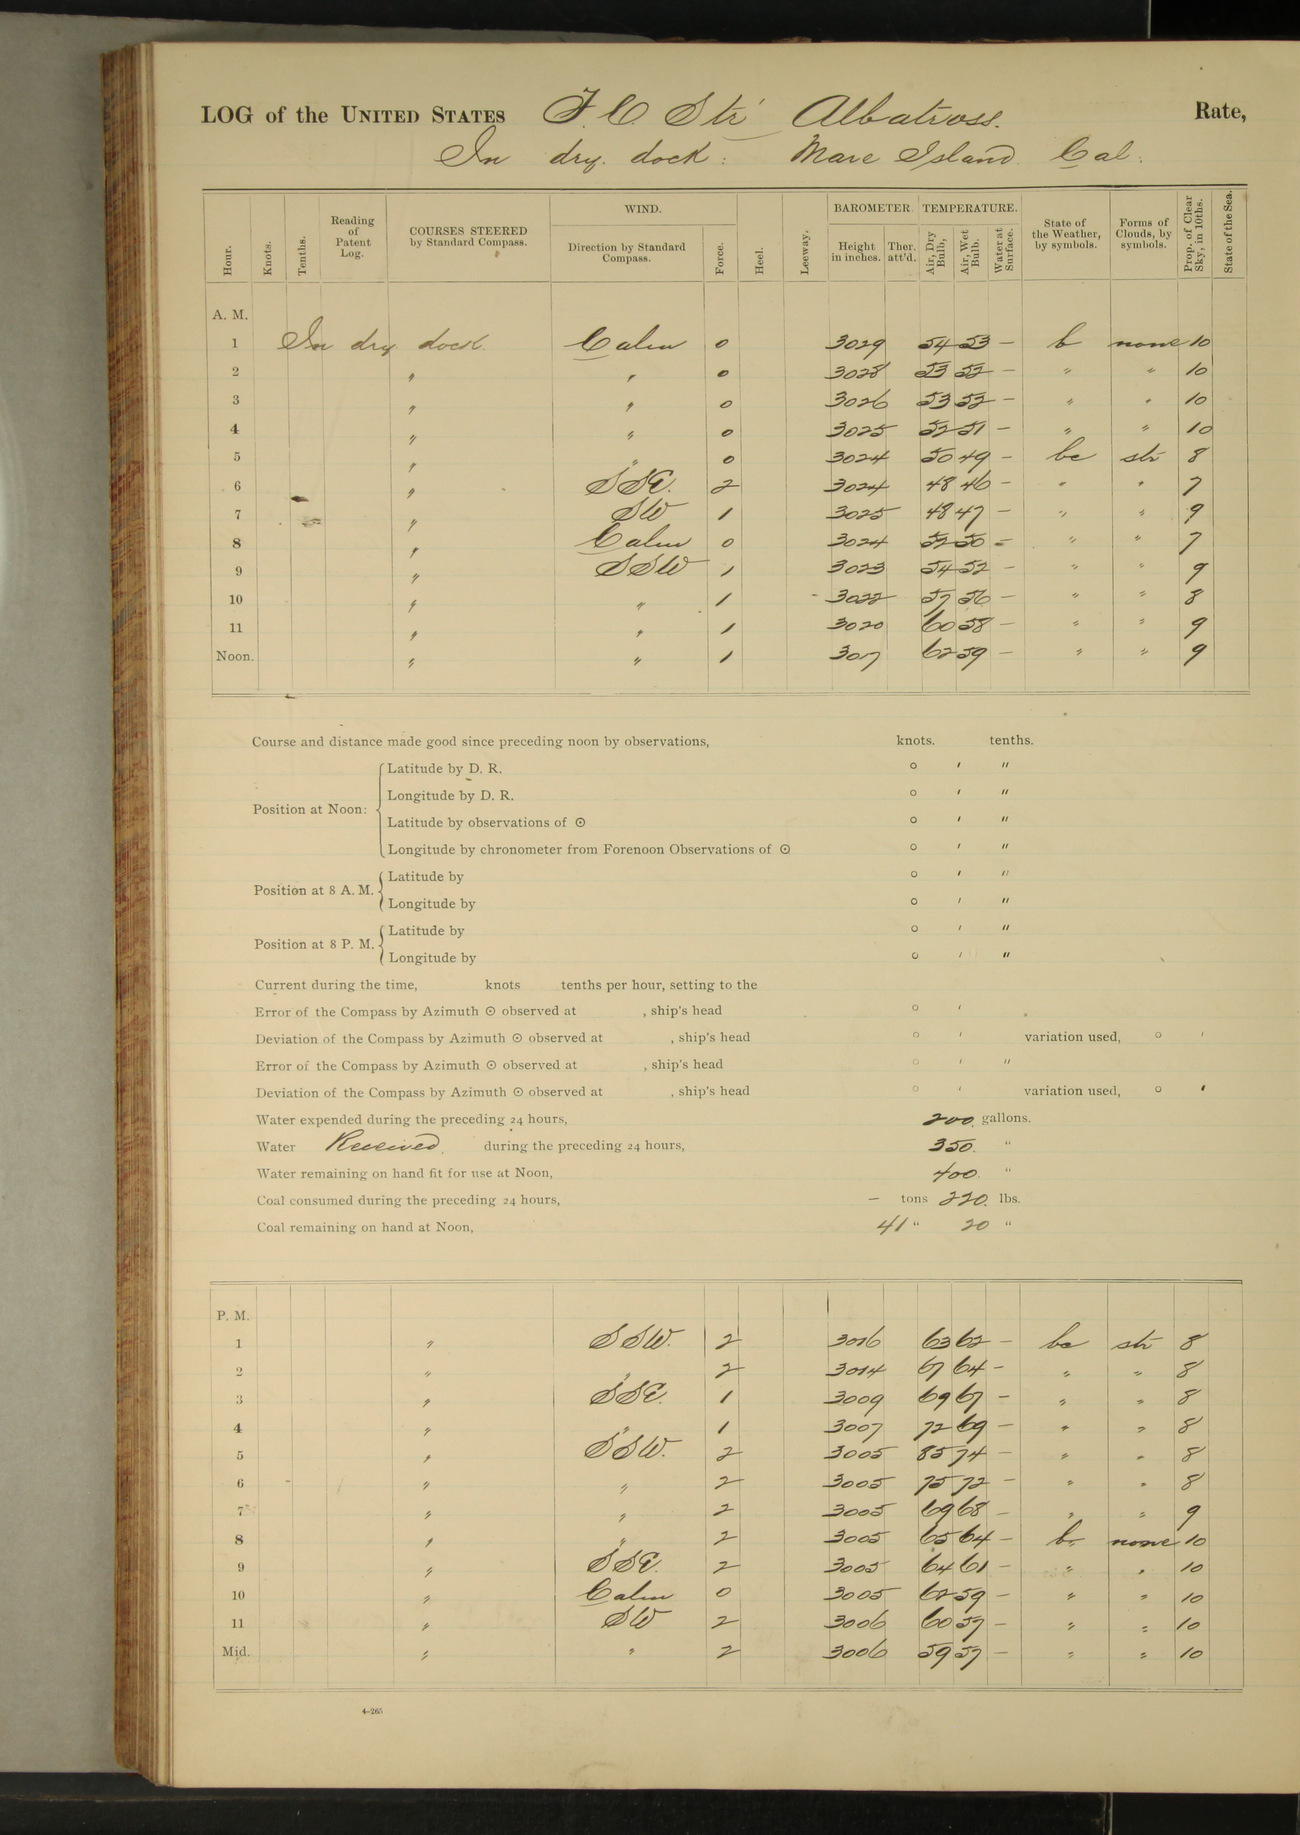 LOG of the UNITED STATES F. C. Str Albatross. Rate,
In dry. dock: Mare Island Cal.
Hour. Knots. Tenths. Reading of Patent Log. COURSES STEERED by Standard Compass. WIND. Direction by Standard Compass. Force. Heel. Leeway. BAROMETER. Height in inches. Ther. att'd. TEMPERATURE. Air, Dry Bulb, Air, Wet Bulb. Water at Surface. State of the Weather, by symbols. Forms of Clouds, by symbols. Prop. of Clear Sky, in 10ths. State of the Sea.
A. M.
1 In dry dock. Calm 0 3029 54 53 — b none 10
2 " " 0 3028 53 52 — " " 10
3 " " 0 3026 53 52 — " " 10
4 " " 0 3025 52 51 — " " 10
5 " " 0 3024 50 49 — bc str 8
6 " SSE. 2 3024 48 46 — " " 7
7 " SW 1 3025 48 47 — " " 9
8 " Calm 0 3024 52 50 — " " 7
9 " SSW 1 3023 54 52 — " " 9
10 " " 1 3022 57 56 — " " 8
11 " " 1 3020 60 58 — " " 9
Noon. " " 1 3017 62 59 — " " 9
Course and distance made good since preceding noon by observations, knots. tenths.
Position at Noon:
Latitude by D. R. ° ′ ″
Longitude by D. R. ° ′ ″
Latitude by observations of ☉ ° ′ ″
Longitude by chronometer from Forenoon Observations of ☉ ° ′ ″
Position at 8 A. M.
Latitude by ° ′ ″
Longitude by ° ′ ″
Position at 8 P. M.
Latitude by ° ′ ″
Longitude by ° ′ ″
Current during the time, knots tenths per hour, setting to the
Error of the Compass by Azimuth ☉ observed at , ship's head ° ′
Deviation of the Compass by Azimuth ☉ observed at , ship's head ° ′ variation used, ° ′
Error of the Compass by Azimuth ☉ observed at , ship's head ° ′ ″
Deviation of the Compass by Azimuth ☉ observed at , ship's head ° ′ variation used, ° ′
Water expended during the preceding 24 hours, 200 gallons.
Water Received. during the preceding 24 hours, 350. "
Water remaining on hand fit for use at Noon, 400. "
Coal consumed during the preceding 24 hours, — tons 220. lbs.
Coal remaining on hand at Noon, 41 " 20 "
P. M.
1 " SSW. 2 3016 63 62 — bc str 8
2 " " 2 3014 67 64 — " " 8
3 " SSE. 1 3009 69 67 — " " 8
4 " " 1 3007 72 69 — " " 8
5 " SSW. 2 3005 85 74 — " " 8
6 " " 2 3005 75 72 — " " 8
7 " " 2 3005 69 68 — " " 9
8 " " 2 3005 65 64 — b. none 10
9 " SSE. 2 3005 64 61 — " " 10
10 " Calm 0 3005 62 59 — " " 10
11 " SW 2 3006 60 57 — " " 10
Mid. " " 2 3006 59 57 — " " 10
4—265